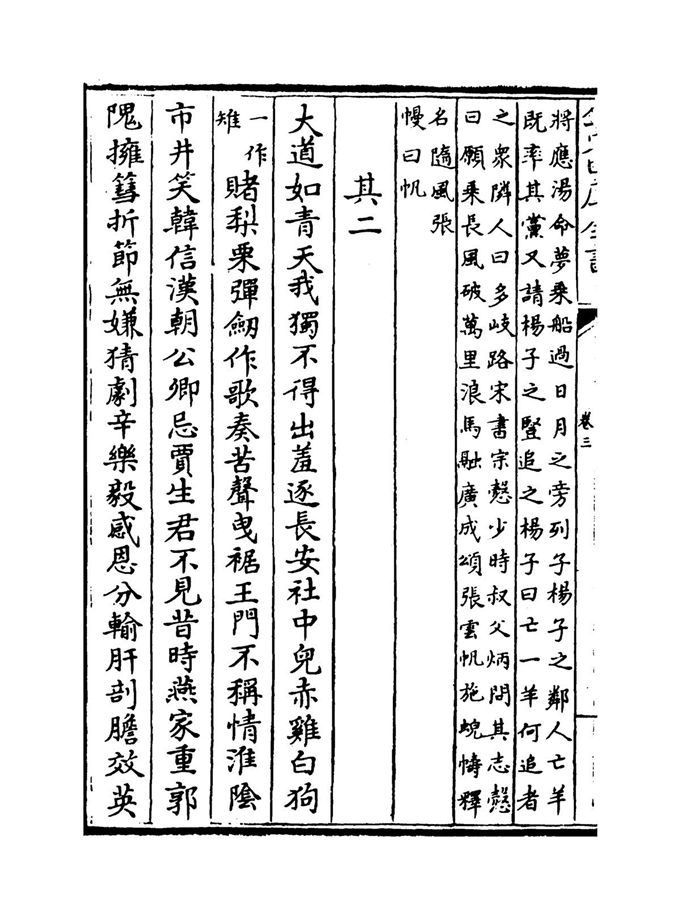 將應湯命夢乘船過日月之旁列子楊子之鄰人亡羊
既率其黨又請楊子之豎追之楊子曰亡一羊何追者
之衆隣人曰多岐路宋書宗慤少時叔父炳問其志慤
曰願乘長風破萬里浪馬融廣成頌張雲帆施蜺幬釋
名隨風張
幔曰帆
其二
大道如青天我獨不得出羞逐長安社中兒赤雞白狗
一作
雉
賭梨栗彈劒作歌奏苦聲曳裾王門不稱情淮陰
市井笑韓信漢朝公卿忌賈生君不見昔時燕家重郭
隗擁篲折節無嫌猜劇辛樂毅感恩分輸肝剖膽效英
卷三